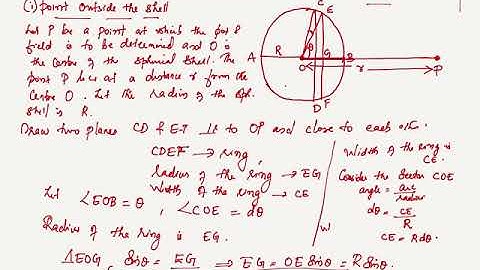 (i) point outside the shell
Let P be a point at which the pot &
field is to be determined and O is
the centre of the spherical shell. The
point P lies at a distance r from the
Centre O. Let the Radius of the sph.
Shell is R.
A R O G B P
C E
θ
r
D F
Draw two planes CD & EF ⊥r to OP and close to each other.
CDEF → ring,
radius of the ring → EG
Width of the ring → CE
Let ∠EOB = θ, ∠COE = dθ
Radius of the ring is EG.
ΔEOG, Sinθ = EG ⇒ EG = OE Sinθ = R Sinθ
Width of the ring is
CE.
Consider the Sector COE
angle = arc/radius
dθ = CE/R
CE = Rdθ.
W